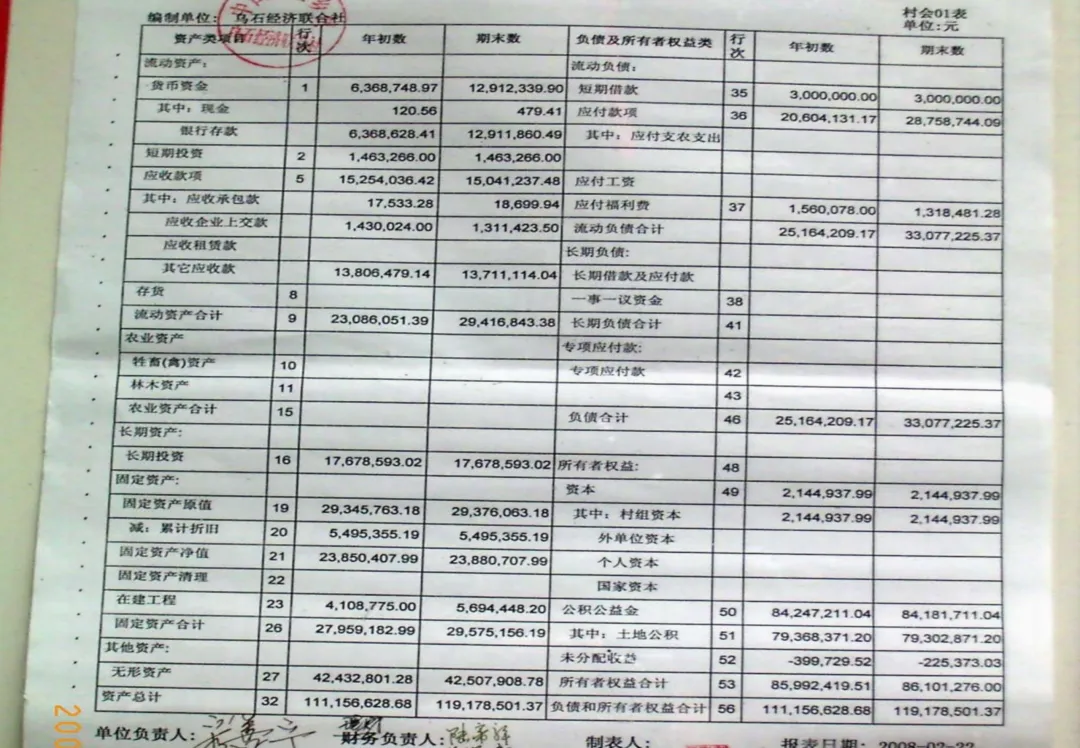 编制单位: 乌石经济联合社
村会01表
单位:元
资产类项目 行次 年初数 期末数 负债及所有者权益类 行次 年初数 期末数
流动资产: 流动负债:
货币资金 1 6,368,748.97 12,912,339.90 短期借款 35 3,000,000.00 3,000,000.00
其中:现金 120.56 479.41 应付款项 36 20,604,131.17 28,758,744.09
银行存款 6,368,628.41 12,911,860.49 其中:应付支农支出
短期投资 2 1,463,266.00 1,463,266.00
应收款项 5 15,254,036.42 15,041,237.48 应付工资
其中:应收承包款 17,533.28 18,699.94 应付福利费 37 1,560,078.00 1,318,481.28
应收企业上交款 1,430,024.00 1,311,423.50 流动负债合计 25,164,209.17 33,077,225.37
应收租赁款 长期负债:
其它应收款 13,806,479.14 13,711,114.04 长期借款及应付款
存货 8 一事一议资金 38
流动资产合计 9 23,086,051.39 29,416,843.38 长期负债合计 41
农业资产 专项应付款:
牲畜(禽)资产 10 专项应付款 42
林木资产 11 43
农业资产合计 15 负债合计 46 25,164,209.17 33,077,225.37
长期资产:
长期投资 16 17,678,593.02 17,678,593.02 所有者权益: 48
固定资产: 资本 49 2,144,937.99 2,144,937.99
固定资产原值 19 29,345,763.18 29,376,063.18 其中:村组资本 2,144,937.99 2,144,937.99
减:累计折旧 20 5,495,355.19 5,495,355.19 外单位资本
固定资产净值 21 23,850,407.99 23,880,707.99 个人资本
固定资产清理 22 国家资本
在建工程 23 4,108,775.00 5,694,448.20 公积公益金 50 84,247,211.04 84,181,711.04
固定资产合计 26 27,959,182.99 29,575,156.19 其中:土地公积 51 79,368,371.20 79,302,871.20
其他资产: 未分配收益 52 -399,729.52 -225,373.03
无形资产 27 42,432,801.28 42,507,908.78 所有者权益合计 53 85,992,419.51 86,101,276.00
资产总计 32 111,156,628.68 119,178,501.37 负债和所有者权益合计 56 111,156,628.68 119,178,501.37
单位负责人: 财务负责人: 制表人: 报表日期: 2008-02-22
200